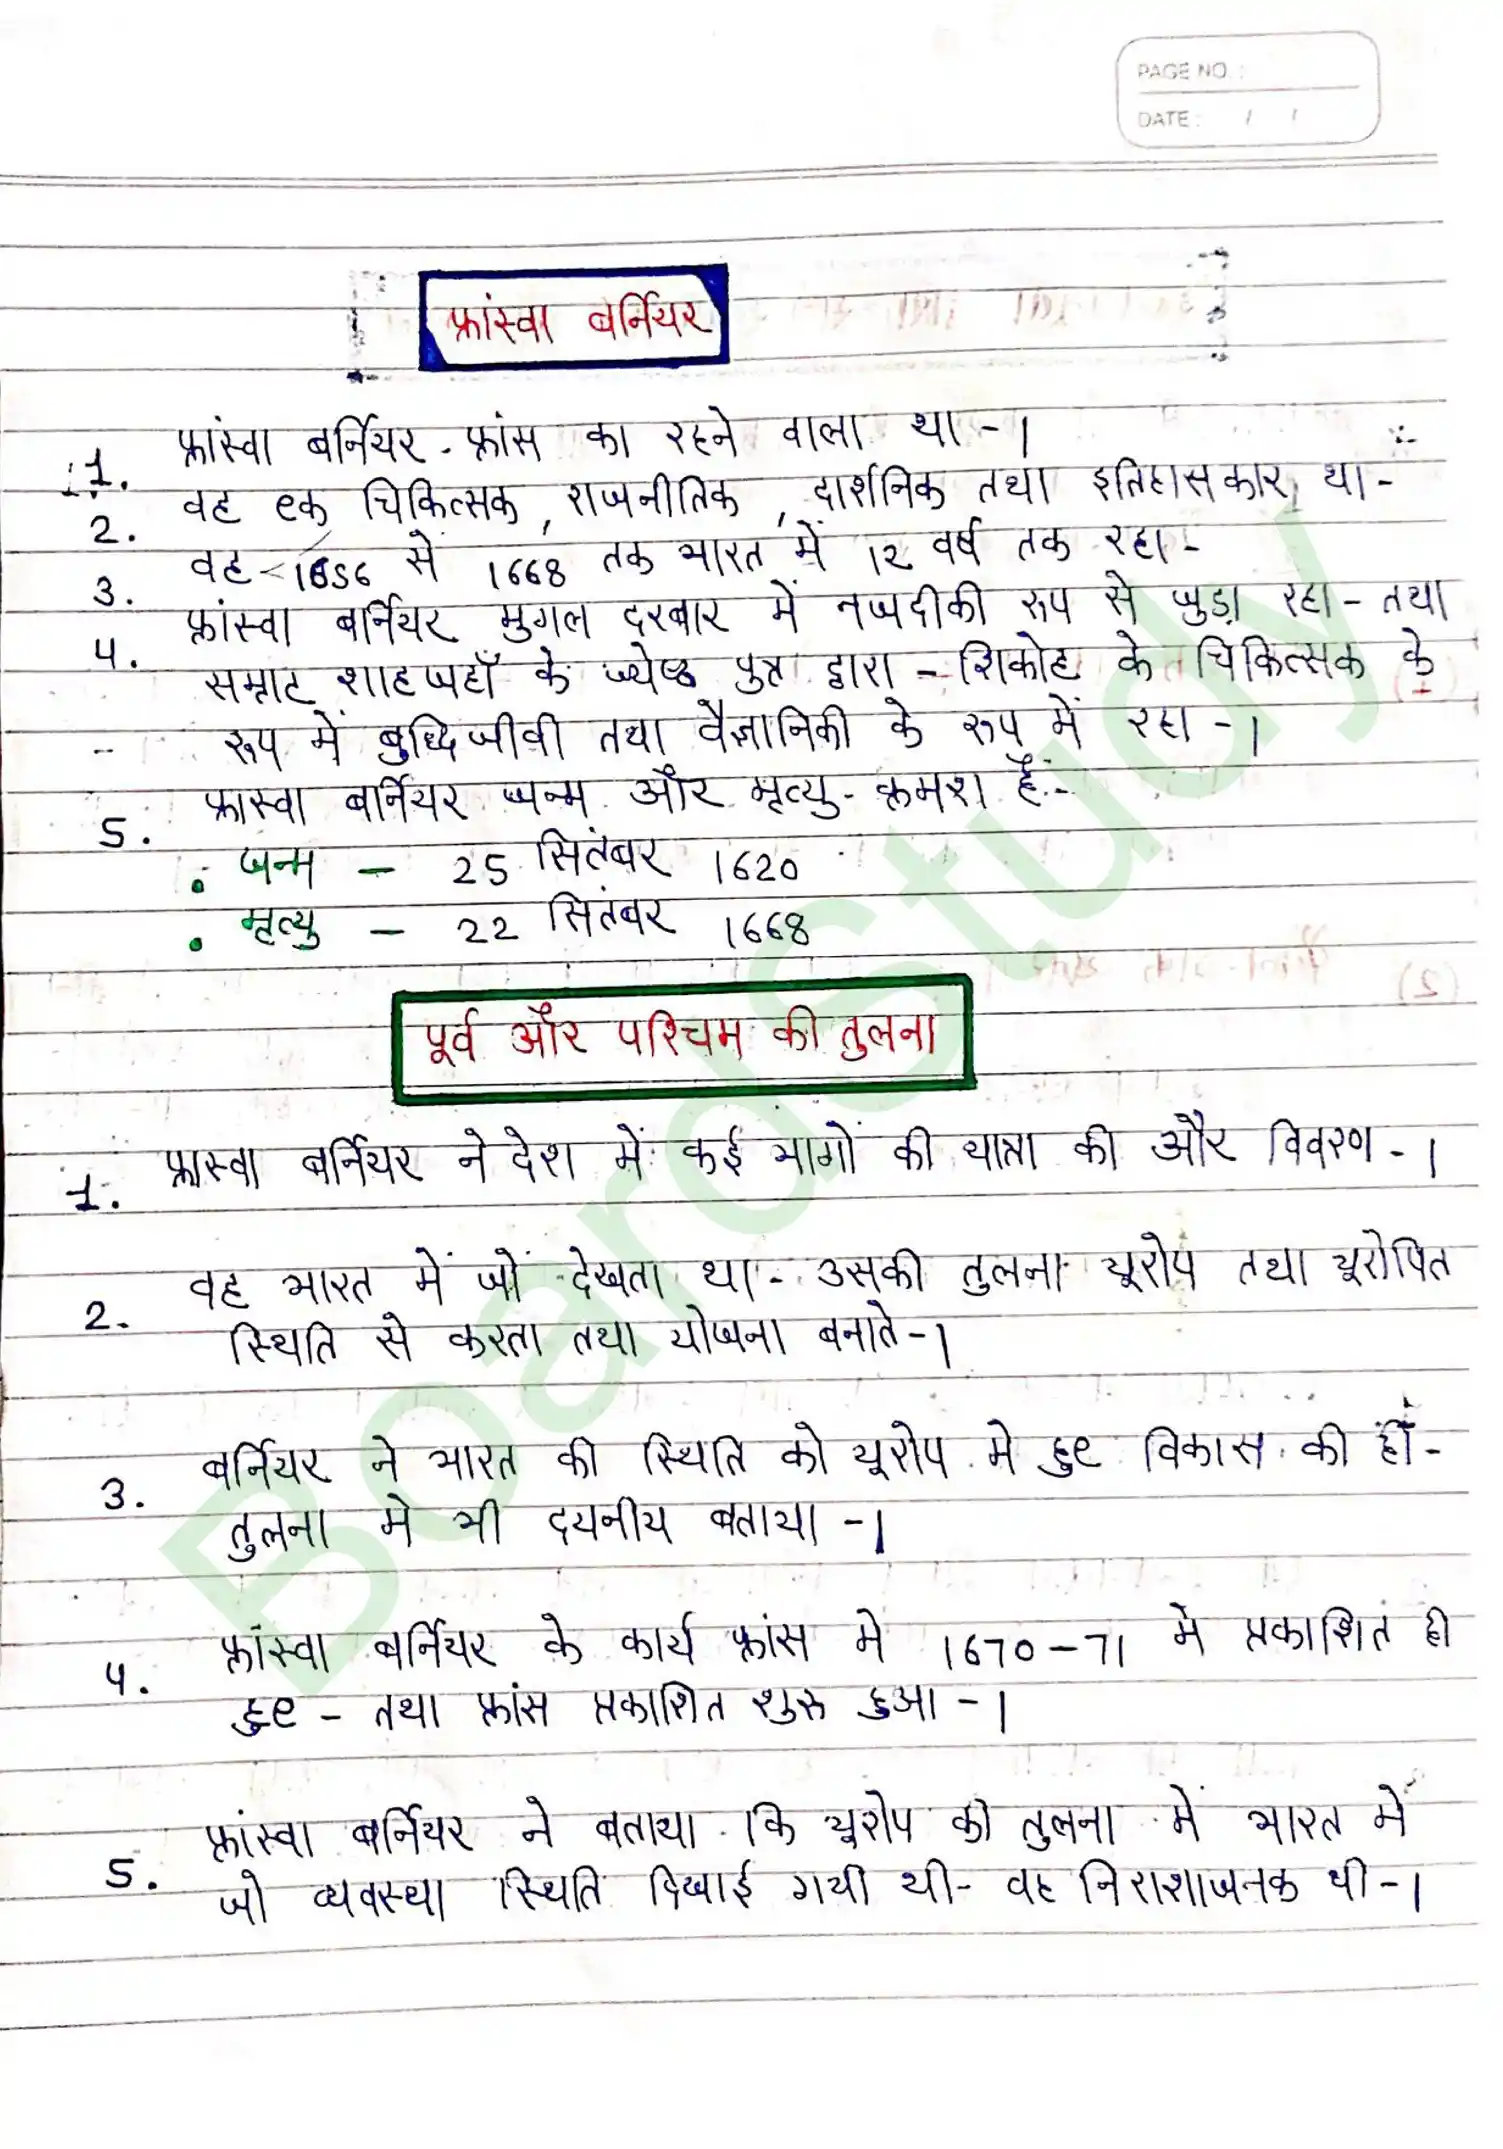 PAGE NO. :
DATE : / /
फ्रांस्वा बर्नियर
1. फ्रांस्वा बर्नियर - फ्रांस का रहने वाला था - ।
2. वह एक चिकित्सक, राजनीतिक, दार्शनिक तथा इतिहासकार था -
3. वह - 1656 से 1668 तक भारत में 12 वर्ष तक रहा -
4. फ्रांस्वा बर्नियर मुगल दरबार में नजदीकी रूप से जुड़ा रहा - तथा
सम्राट शाहजहाँ के ज्येष्ठ पुत्र द्वारा - शिकोह के चिकित्सक के
रूप में बुध्दिजीवी तथा वैज्ञानिकी के रूप में रहा - ।
5. फ्रास्वा बर्नियर जन्म और मृत्यु - क्रमश हैं:-
• जन्म - 25 सितंबर 1620
• मृत्यु - 22 सितंबर 1668
पूर्व और पश्चिम की तुलना
1. फ्रास्वा बर्नियर ने देश में कई भागों की यात्रा की और विवरण - ।
2. वह भारत में जों देखता था - उसकी तुलना यूरोप तथा यूरोपित
स्थिति से करता तथा योजना बनाते - ।
3. बर्नियर ने भारत की स्थिति को यूरोप मे हुए विकास की हीं -
तुलना मे भी दयनीय बताया - ।
4. फ्रांस्वा बर्नियर के कार्य फ्रांस मे 1670-71 मे प्रकाशित ही
हुए - तथा फ्रांस प्रकाशित शुरू हुआ - ।
5. फ्रांस्वा बर्नियर ने बताया कि यूरोप की तुलना में भारत में
जो व्यवस्था स्थिति दिखाई गयी थी - वह निराशाजनक थी - ।
BoardStudy